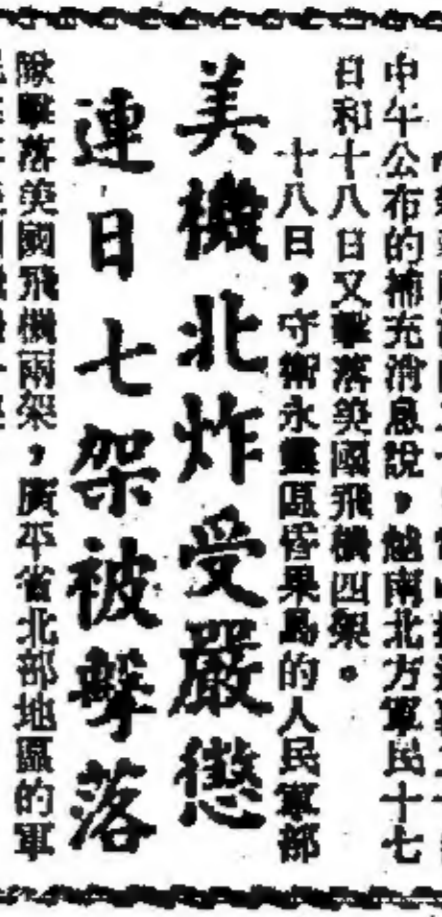 申午公布的補充消息說，越南北方軍民十七
日和十八日又擊落美國飛機四架。
十八日，守衛永靈區昏果島的人民軍部
美機北炸受嚴懲
連日七架被擊落
隊擊落美國飛機兩架，廣平省北部地區的軍